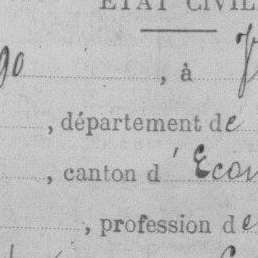 ÉTAT CIVIL
90 , à
, département de
, canton d'Ecom
, profession de